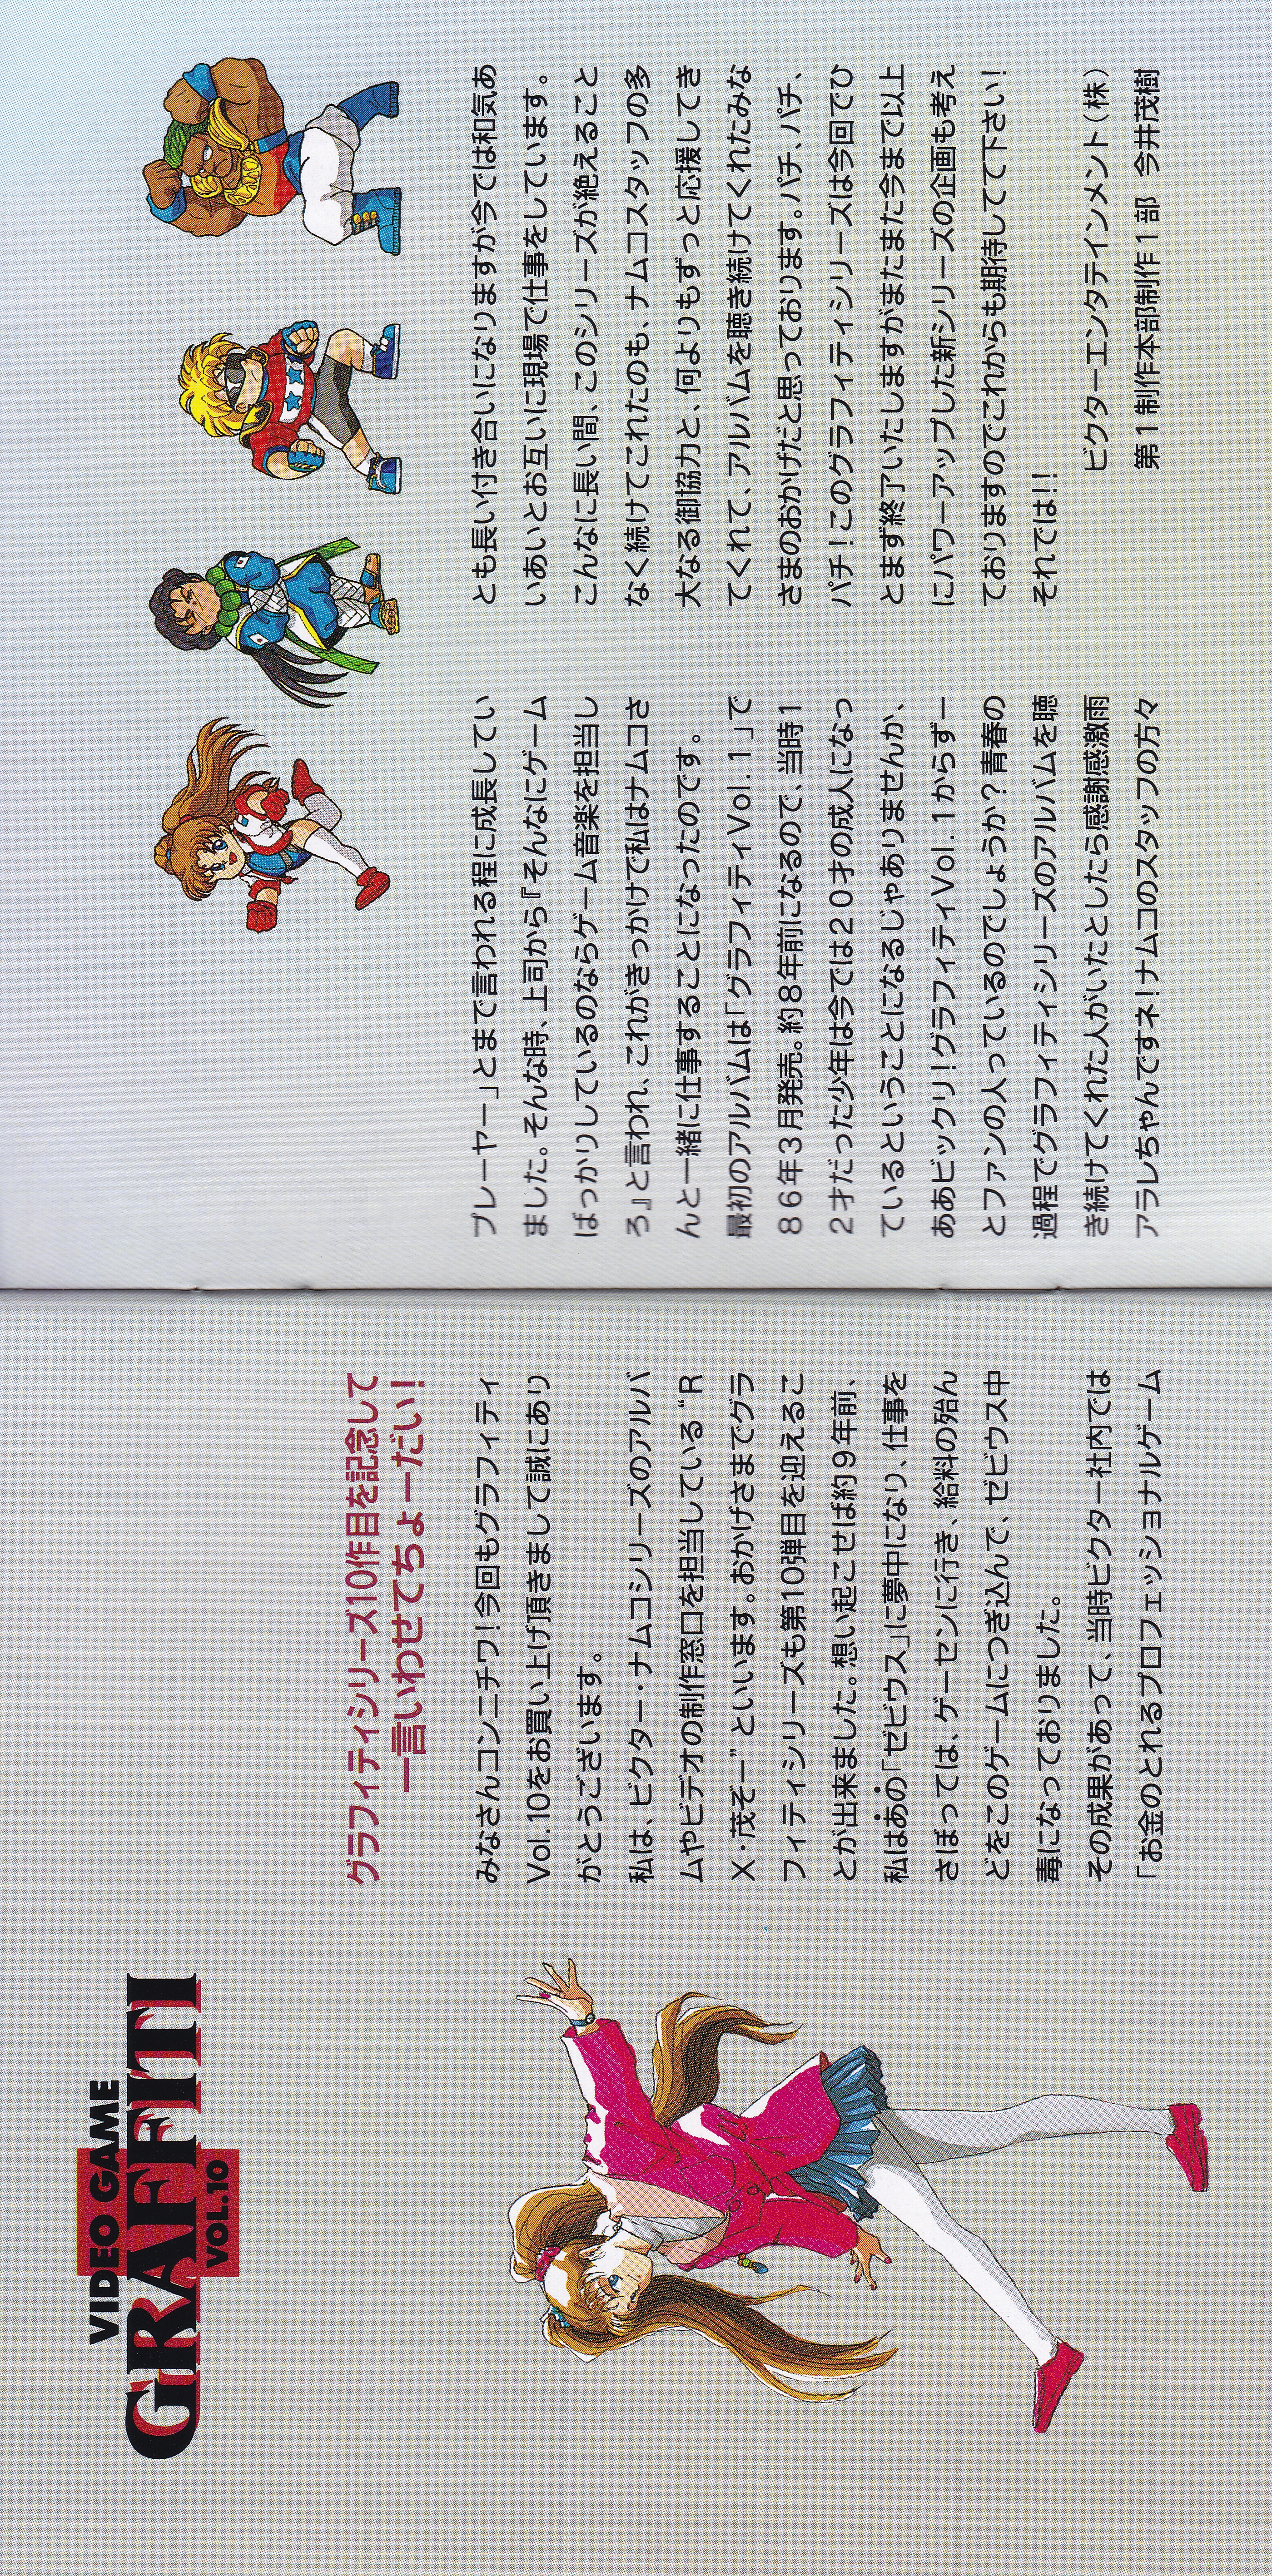 VIDEO GAME
GRAFFITI
VOL.10
グラフィティシリーズ10作目を記念して
一言いわせてちょーだい!
みなさんコンニチワ!今回もグラフィティ
Vol.10をお買い上げ頂きまして誠にあり
がとうございます。
私は、ビクター・ナムコシリーズのアルバ
ムやビデオの制作窓口を担当している“R
X・茂ぞー”といいます。おかげさまでグラ
フィティシリーズも第10弾目を迎えるこ
とが出来ました。想い起こせば約9年前、
私はあの「ゼビウス」に夢中になり、仕事を
さぼっては、ゲーセンに行き、給料の殆ん
どをこのゲームにつぎ込んで、ゼビウス中
毒になっておりました。
その成果があって、当時ビクター社内では
「お金のとれるプロフェッショナルゲーム
プレーヤー」とまで言われる程に成長してい
ました。そんな時、上司から『そんなにゲーム
ばっかりしているのならゲーム音楽を担当し
ろ』と言われ、これがきっかけで私はナムコさ
んと一緒に仕事することになったのです。
最初のアルバムは「グラフィティVol.1」で
86年3月発売。約8年前になるので、当時1
2才だった少年は今では20才の成人になっ
ているということになるじゃありませんか、
ああビックリ!グラフィティVol.1からずー
とファンの人っているのでしょうか?青春の
過程でグラフィティシリーズのアルバムを聴
き続けてくれた人がいたとしたら感謝感激雨
アラレちゃんですネ!ナムコのスタッフの方々
とも長い付き合いになりますが今では和気あ
いあいとお互いに現場で仕事をしています。
こんなに長い間、このシリーズが絶えること
なく続けてこれたのも、ナムコスタッフの多
大なる御協力と、何よりもずっと応援してき
てくれて、アルバムを聴き続けてくれたみな
さまのおかげだと思っております。パチ、パチ、
パチ!このグラフィティシリーズは今回でひ
とまず終了いたしますがまたまた今まで以上
にパワーアップした新シリーズの企画も考え
ておりますのでこれからも期待してて下さい!
それでは!!
ビクターエンタテインメント(株)
第1制作本部制作1部 今井茂樹